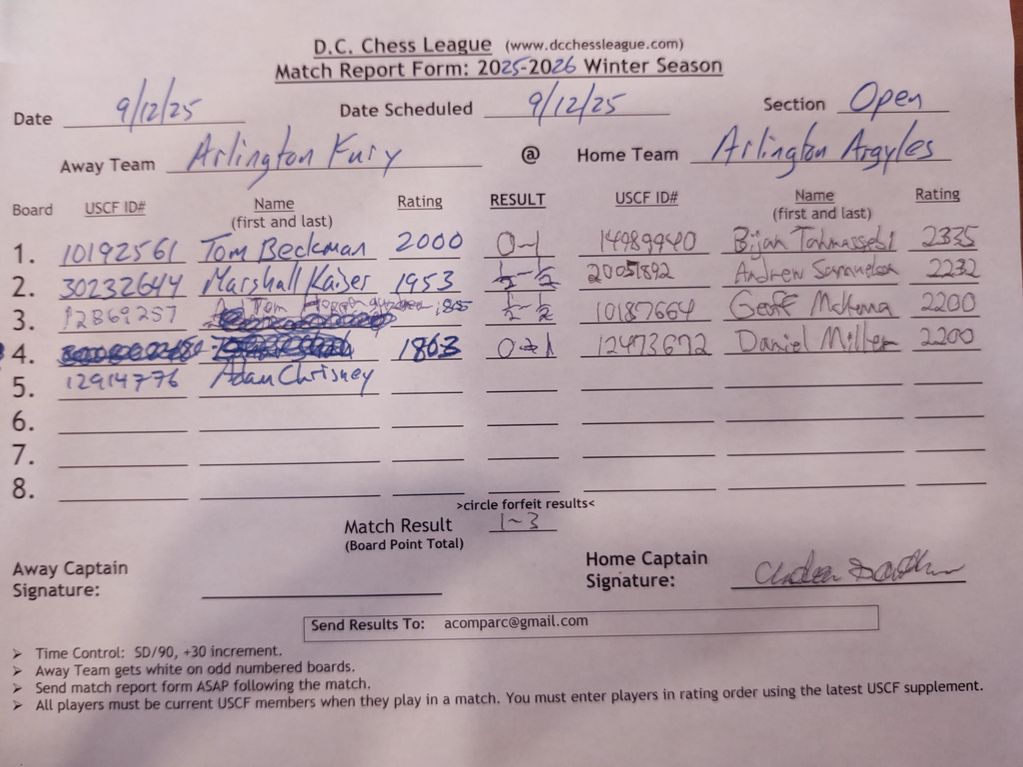 D.C. Chess League (www.dcchessleague.com)
Match Report Form: 2025-2026 Winter Season
Date 9/12/25 Date Scheduled 9/12/25 Section Open
Away Team Arlington Fury @ Home Team Arlington Argyles
Board USCF ID# Name (first and last) Rating RESULT USCF ID# Name (first and last) Rating
1. 10192561 Tom Beckman 2000 0-1 14989940 Bijan Tahmassebi 2335
2. 30232644 Marshall Kaiser 1953 ½-½ 20051892 Andrew Samuelson 2232
3. 12869257 ½-½ 10187664 Geoff McKenna 2200
4. 1863 0-1 12473672 Daniel Miller 2200
5. 12914776 Adam Chrisney
6.
7.
8.
>circle forfeit results<
Match Result 1-3
(Board Point Total)
Away Captain Home Captain
Signature: Signature:
Send Results To: acomparc@gmail.com
➢ Time Control: SD/90, +30 increment.
➢ Away Team gets white on odd numbered boards.
➢ Send match report form ASAP following the match.
➢ All players must be current USCF members when they play in a match. You must enter players in rating order using the latest USCF supplement.